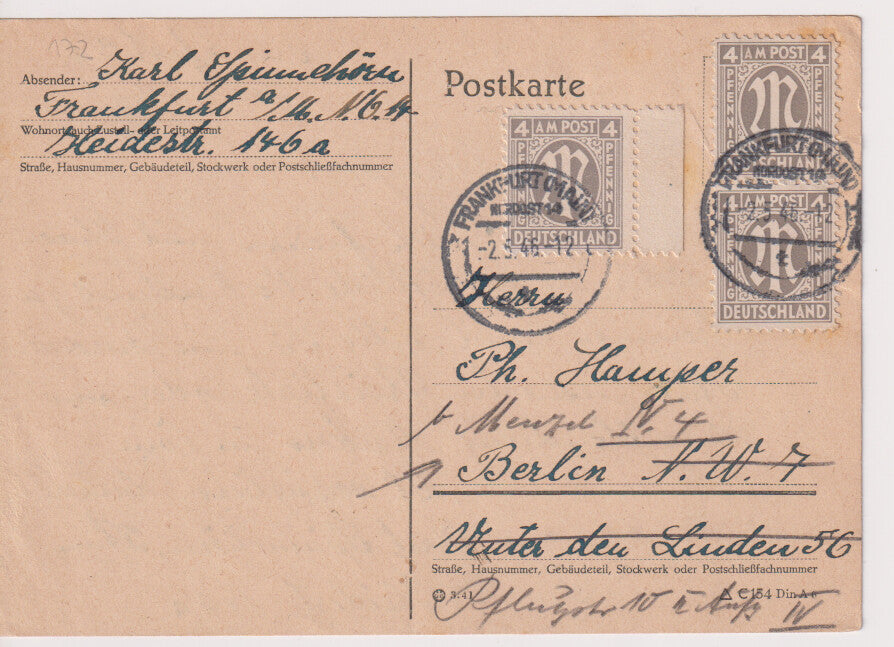 172
Absender: Karl Spinnehörn
Frankfurt a/M. N.O. 14
Wohnort, auch Zustell- oder Leitpostamt
Heidestr. 146a
Straße, Hausnummer, Gebäudeteil, Stockwerk oder Postschließfachnummer
Postkarte
4 AM POST 4
PFENNIG PFENNIG
DEUTSCHLAND
4 AM POST 4
PFENNIG PFENNIG
DEUTSCHLAND
4 AM POST 4
PFENNIG PFENNIG
DEUTSCHLAND
FRANKFURT (MAIN)
NORDOST 14
-2.5.46.-12
FRANKFURT (MAIN)
NORDOST 14
-2.5.46.-12
Herrn
Ph. Hamper
b Menzel IV. 4
Berlin N.W. 7
Unter den Linden 56
Straße, Hausnummer, Gebäudeteil, Stockwerk oder Postschließfachnummer
3.41 C 154 Din A 6
Pflugstr 10 IV